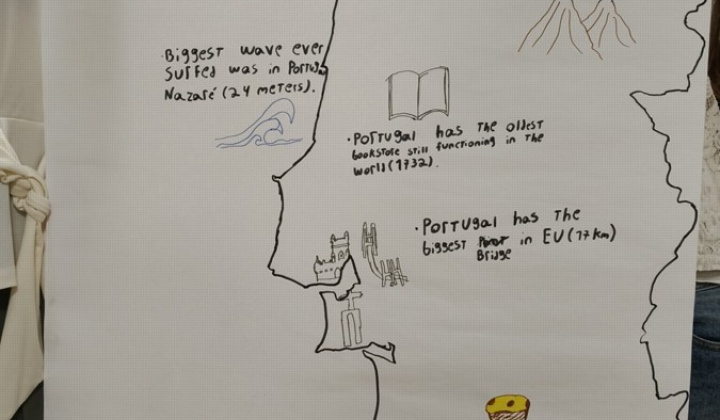 ·Biggest wave ever
surfed was in Portugal
Nazaré (24 meters).
·Portugal has the oldest
bookstore still functioning in the
world (1732).
·Portugal has the
biggest in EU (17km)
Bridge